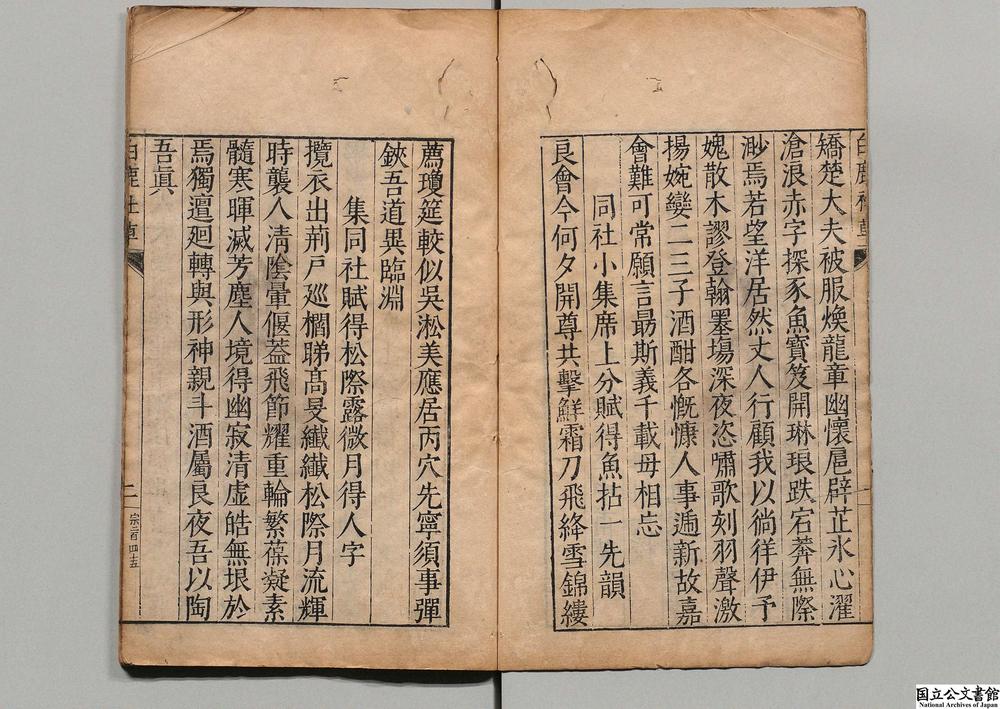 矯楚大夫被服煥龍章幽懷扈辟芷氷心濯
滄浪赤字探豕魚寶笈開琳琅跌宕莽無際
渺焉若望洋居然丈人行顧我以徜徉伊予
媿散木謬登翰墨塲深夜恣嘯歌刻羽聲激
揚婉孌二三子酒酣各慨慷人事遞新故嘉
會難可常願言最斯義千載毋相忘
同社小集席上分賦得魚拈一先韻
良會今何夕開尊共擊鮮霜刀飛絳雪錦縷
薦瓊筵較似吳淞美應居丙穴先寧須事彈
鋏吾道異臨淵
集同社賦得松際露微月得人字
攬衣出荊戶廵櫩睇高旻纖纖松際月流輝
時襲人淸陰暈偃蓋飛節耀重輪繁葆凝素
髓寒暉滅芳塵人境得幽寂清虛皓無垠於
焉獨邅廻轉與形神親斗酒屬良夜吾以陶
吾眞
白鹿社草
二
宗二百四十五
国立公文書館
National Archives of Japan